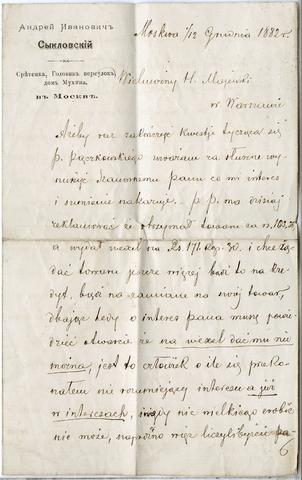 Андрей Ивановичъ
Сыкловскій
Срѣтенка, Головинъ переулокъ,
домъ Мухина,
въ Москвѣ.
Moskwa 1/13 Grudnia 1882 r.
Wielmożny H. Majewski
w Warszawie
Ażeby raz zakończyć kwestję tyczącą się
p. Pączkowskiego uważam za słuszne wy-
Szanownemu panu co mi interes
i sumienie nakazuje. p. p. ma dzisiaj
że otrzymał towaru za r.
a wydał weksel na Rs. 171. Kop. 50. i chce żą-
dać towaru jeszcze więcej bądź to na kre-
dyt, bądź na zamianę na swój towar,
dbając tedy o interes pana muszę powie-
dzieć otwarcie że na weksel dać mu nie
można, jest to człowiek o ile się przeko-
nałem nie rozumiejący interesu a już
w interesach, nic wielkiego zrobić
nie może, napróżno więc